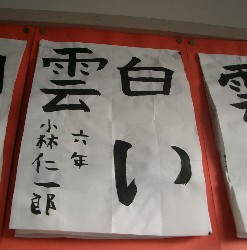 白い
雲
六年
小林仁一郎